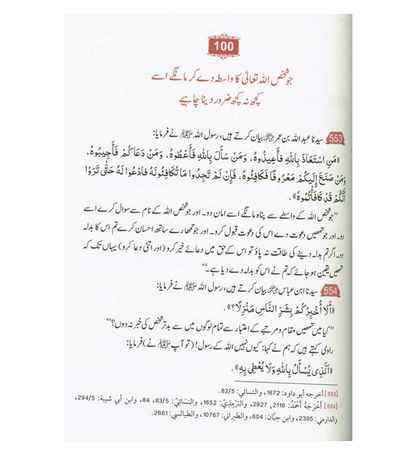 100
جو شخص اللہ تعالیٰ کا واسطہ دے کر مانگے اسے
کچھ نہ کچھ ضرور دینا چاہیے
553 سیدنا عبداللہ بن عمر ﷠ بیان کرتے ہیں، رسول اللہ ﷺ نے فرمایا:
«مَنِ اسْتَعَاذَ بِاللّٰهِ فَأَعِيذُوهُ، وَمَنْ سَأَلَ بِاللّٰهِ فَأَعْطُوهُ، وَمَنْ دَعَاكُمْ فَأَجِيبُوهُ،
وَمَنْ صَنَعَ إِلَيْكُمْ مَعْرُوفًا فَكَافِئُوهُ، فَإِنْ لَمْ تَجِدُوا مَا تُكَافِئُونَهُ فَادْعُوا لَهُ حَتَّى تَرَوْا
أَنَّكُمْ قَدْ كَافَأْتُمُوهُ»
”جو شخص اللہ کے واسطے سے پناہ مانگے اسے امان دو۔ اور جو شخص اللہ کے نام سے سوال کرے اسے
دو۔ اور جو تمھیں دعوت دے اس کی دعوت قبول کرو۔ اور جو تمھارے ساتھ احسان کرے تم اس کا بدلہ
دو۔ اگر تم بدلہ دینے کی طاقت نہ پاؤ تو اس کے حق میں دعائے خیر کرو (اور اتنی دعا کرو) یہاں تک کہ
تمھیں یقین ہو جائے کہ تم نے اس کو بدلہ دے دیا ہے۔“
554 سیدنا ابن عباس ﷠ بیان کرتے ہیں، رسول اللہ ﷺ نے فرمایا:
«أَلَا أُخْبِرُكُمْ بِشَرِّ النَّاسِ مَنْزِلًا؟».
”کیا میں تمھیں مقام و مرتبے کے اعتبار سے تمام لوگوں میں سے بدتر شخص کی خبر نہ دوں؟“
راوی کہتے ہیں کہ ہم نے کہا: کیوں نہیں اللہ کے رسول! (تو آپ ﷺ نے) فرمایا:
«الَّذِي يُسْأَلُ بِاللّٰهِ وَلَا يُعْطِي بِهِ».
[553] أخرجه أبو داود: 1672، والنسائي: 82/5.
[554] أَخْرَجَهُ أَحْمَدُ: 2116، 2927، والتِّرْمِذِيّ: 1652، والنسائي: 83/5، 84، وابن أبي شيبة: 294/5،
والدارمي: 2395، وابن حِبَّان: 604، والطبراني: 10767، والطيالسي: 2661.